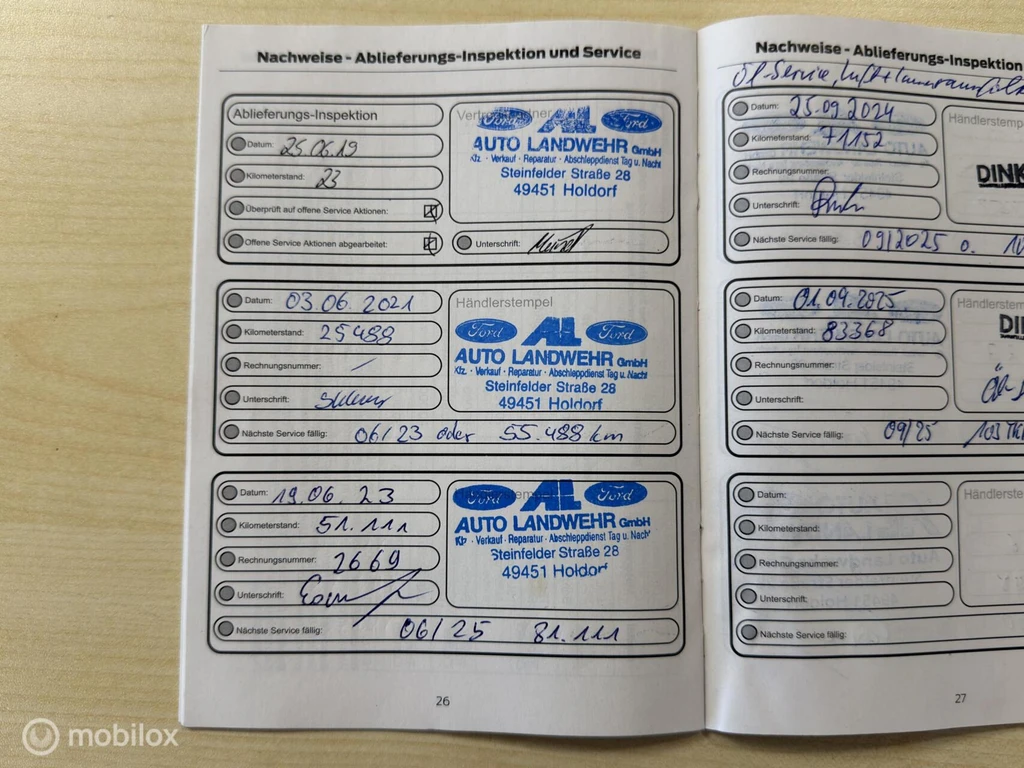 Nachweise - Ablieferungs-Inspektion und Service
Ablieferungs-Inspektion
Datum: 25.06.19
Kilometerstand: 23
Überprüft auf offene Service Aktionen: X
Offene Service Aktionen abgearbeitet: X
Ford AL Ford
AUTO LANDWEHR GmbH
Kfz. - Verkauf - Reparatur - Abschleppdienst Tag u. Nacht
Steinfelder Straße 28
49451 Holdorf
Unterschrift:
Datum: 03.06.2021
Kilometerstand: 25488
Rechnungsnummer: /
Unterschrift:
Händlerstempel
Ford AL Ford
AUTO LANDWEHR GmbH
Kfz. - Verkauf - Reparatur - Abschleppdienst Tag u. Nacht
Steinfelder Straße 28
49451 Holdorf
Nächste Service fällig: 06/23 oder 55.488 km
Datum: 19.06.23
Kilometerstand: 51.111
Rechnungsnummer: 2669
Unterschrift:
Ford AL Ford
AUTO LANDWEHR GmbH
Kfz - Verkauf - Reparatur - Abschleppdienst Tag u. Nacht
Steinfelder Straße 28
49451 Holdorf
Nächste Service fällig: 06/25 81.111
26
Nachweise - Ablieferungs-Inspektion
Öl-Service,
Datum: 25.09.2024
Kilometerstand: 71152
Rechnungsnummer:
Unterschrift:
Händlerstemp
DINK
Nächste Service fällig: 09/2025 o.
Datum: 01.09.2025
Kilometerstand: 83368
Rechnungsnummer:
Unterschrift:
Händlerstem
DI
Nächste Service fällig: 09/25
Datum:
Kilometerstand:
Rechnungsnummer:
Unterschrift:
Händlerste
Nächste Service fällig:
27
mobilox